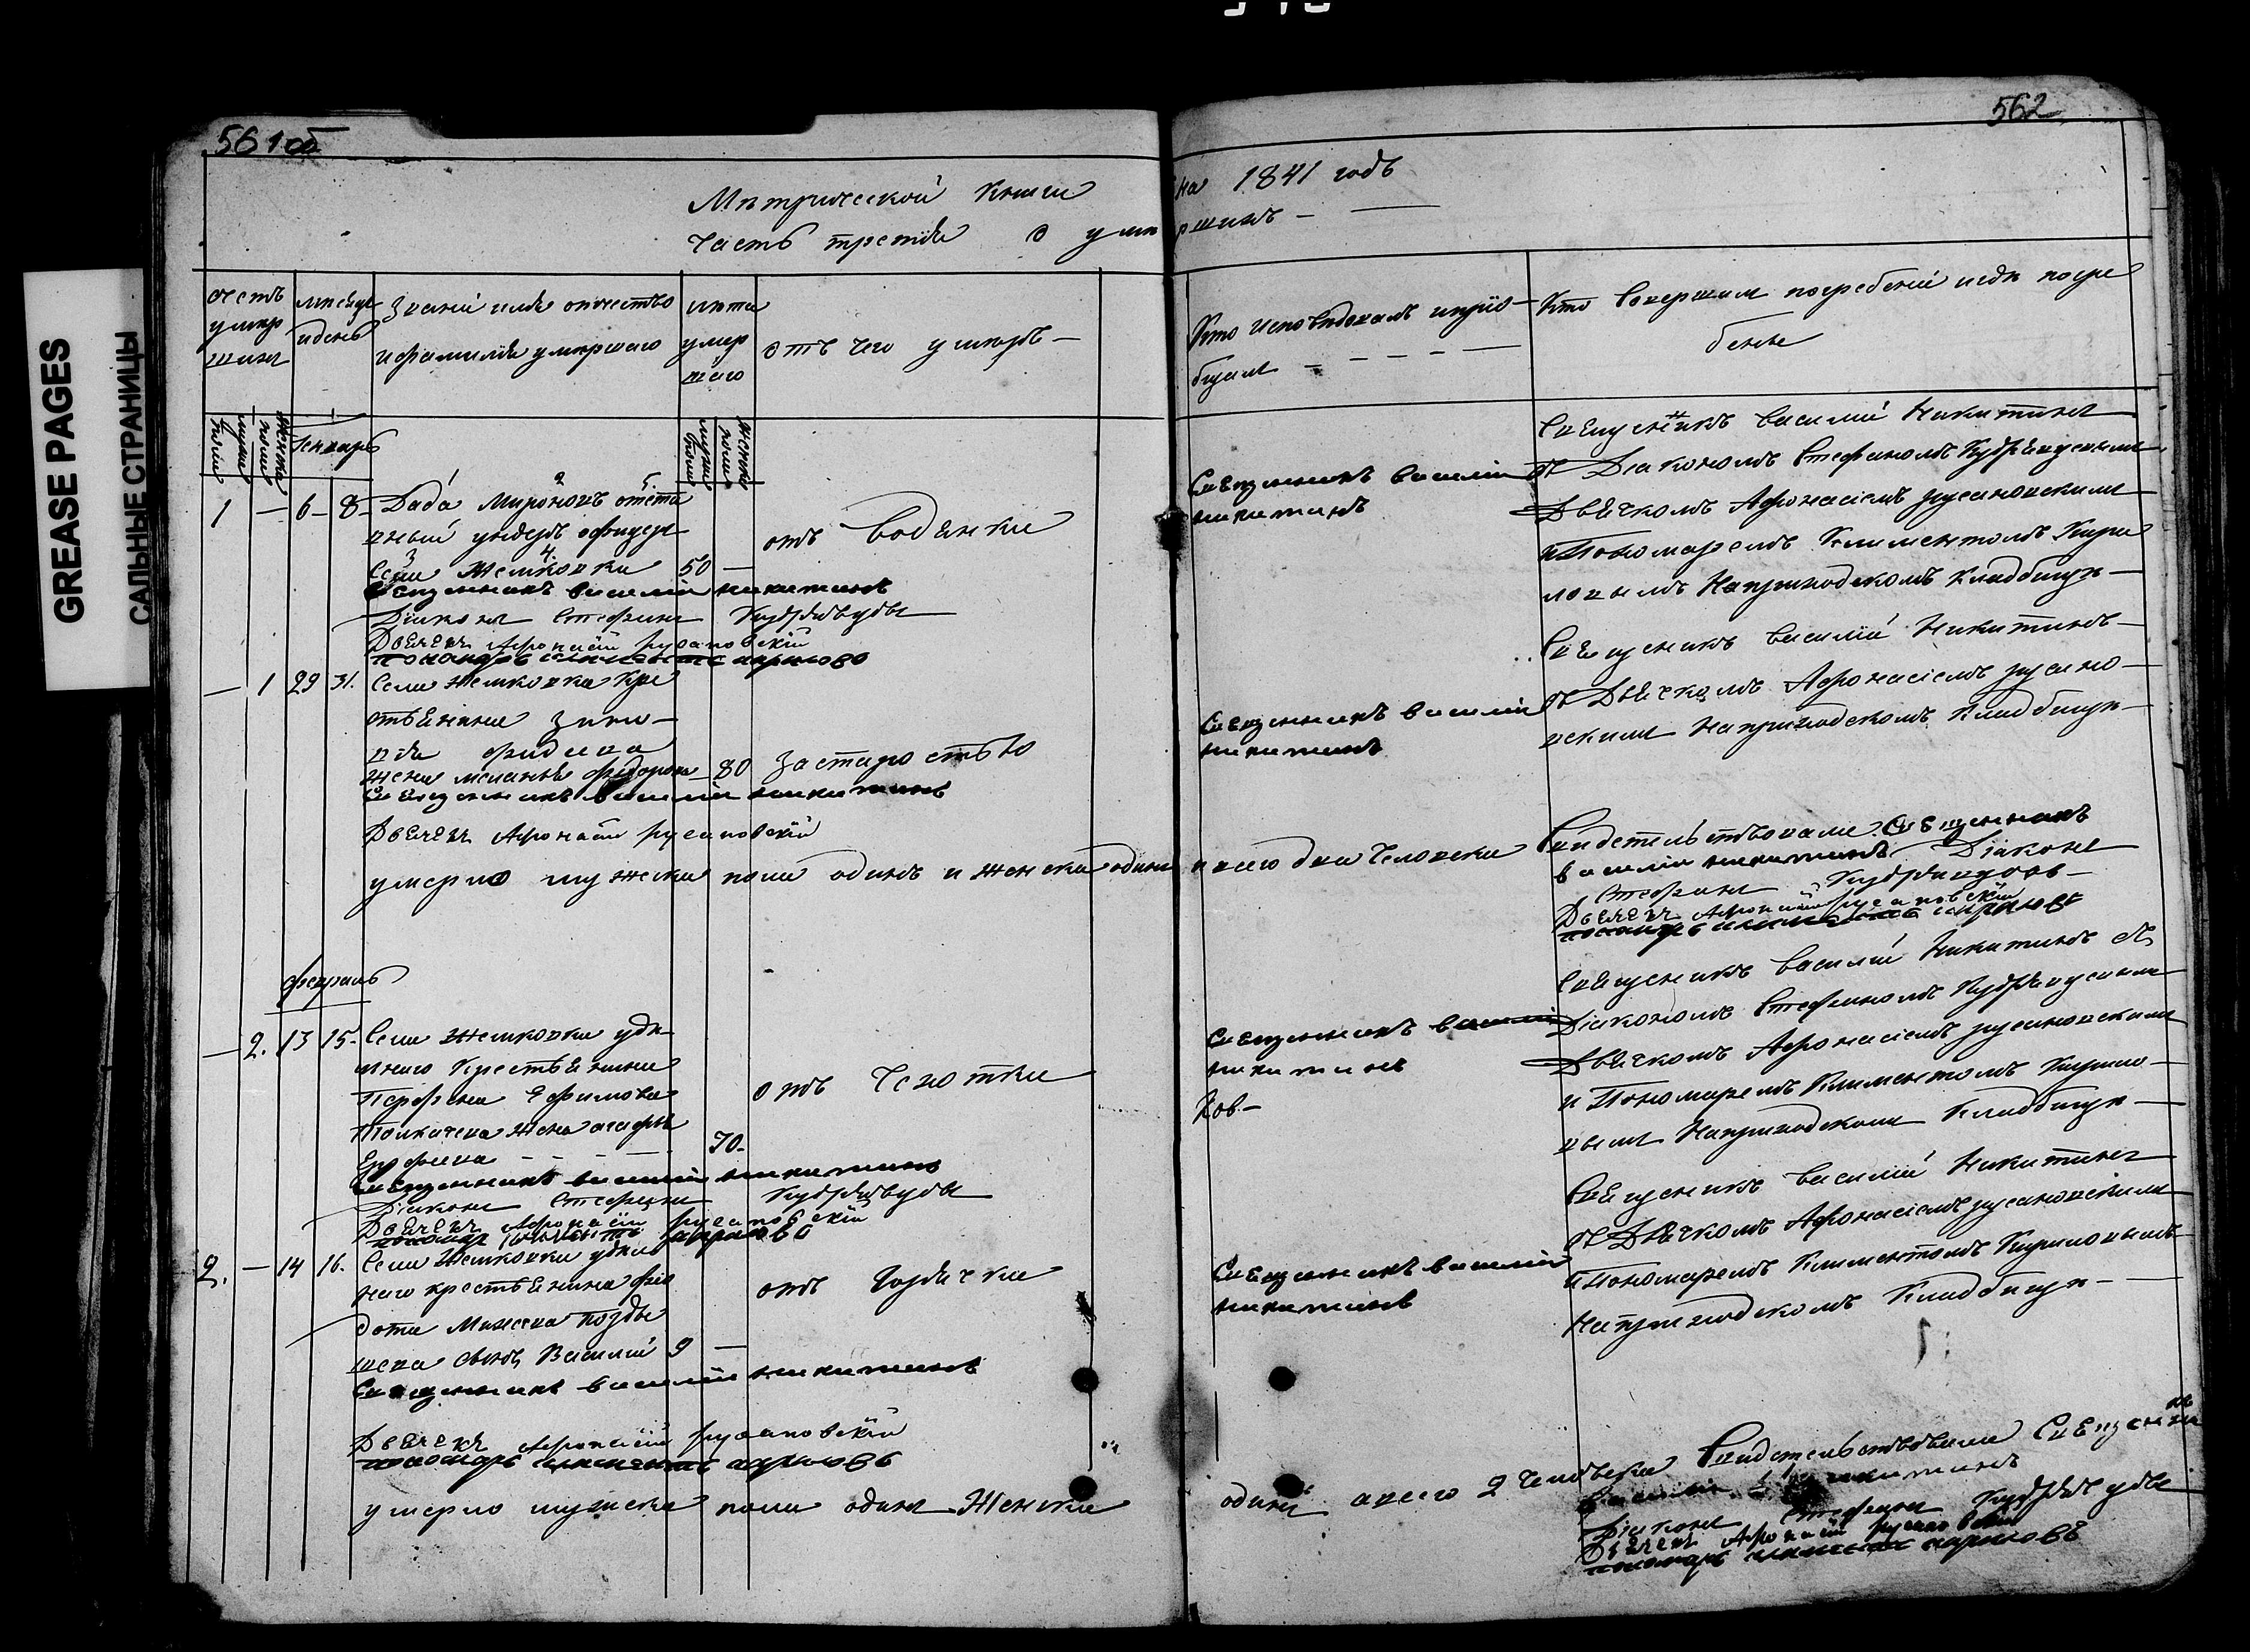 561 об
562
Метрической Книги на 1841 годъ
Часть третия о умершихъ
счетъ умерших
месяцъ и день
Звание имя отчество и фамилия умершаго
лета умершаго
отъ чего умеръ
Кто исповедовалъ и приобщал
Кто Совершил погребение и где погребены
мужска полу
женска полу
Генварь
мужска полу
женска полу
1 — 6 8
Дада Мироновъ отста
вный ундеръ офицеръ
Села Жемковки 50 —
отъ Водянки
Священникъ василий никитинъ
Диаконъ Стефанъ
Дьячекъ Афонасий русановский
пономарь климентъ кириловъ
Священникъ василий
никитинъ
Священникъ василий Никитинъ
съ Диакономъ Стефаномъ
Дьячкомъ Афонасиемъ русановскимъ
и Пономаремъ Климентомъ Кири
ловымъ На приходскомъ кладбище
— 1 29 31.
Села Жемковка Кре
стьянина
фадеева
жена меланья федорова — 80
за старостью
Священникъ василий никитинъ
Дьячекъ Афонасий русановский
Священникъ василий
никитинъ
Священникъ василий Никитинъ
съ Дьячкомъ Афонасиемъ русано
вскимъ На приходскомъ Кладбище
умерло мужска пола одинъ и женска одна
и всего два человека
Свидетельствовали Священникъ
василий никитинъ Диаконъ
Стефанъ
Дьячекъ Афонасий русановский
пономарь климентъ кириловъ
февраль
— 2. 13 15
Села Жемковки уде
лнаго Крестьянина
Парфена Ефимова
Толкачева жена агафья
Ерофеева 70.
отъ Чахотки
Священникъ василий никитинъ
Диаконъ Стефанъ
Дьячекъ Афонасий русановский
пономарь климентъ кириловъ
Священникъ василий
никитинъ
Священникъ василий Никитинъ съ
Диакономъ Стефаномъ
Дьячкомъ Афонасиемъ русановскимъ
и Пономаремъ Климентомъ Кирило
вымъ На приходскомъ Кладбище
2. — 14 16.
Села Жемковки удел
наго крестьянина Фе
дота Позды
шева сынъ Василий 9 —
отъ Горячки
Священникъ василий никитинъ
Дьячекъ Афонасий русановский
пономарь климентъ кириловъ
Священникъ василий
никитинъ
Священникъ василий Никитинъ
съ Дьячкомъ Афонасиемъ русановскимъ
и Пономаремъ Климентомъ Кириловымъ
На приходскомъ Кладбище
умерло мужска пола одинъ Женска
одинъ а всего 2 Человека
Свидетельствовали Священникъ
василий никитинъ
Диаконъ Стефанъ
Дьячекъ Афонасий русановский
пономарь климентъ кириловъ
GREASE PAGES
САЛЬНЫЕ СТРАНИЦЫ